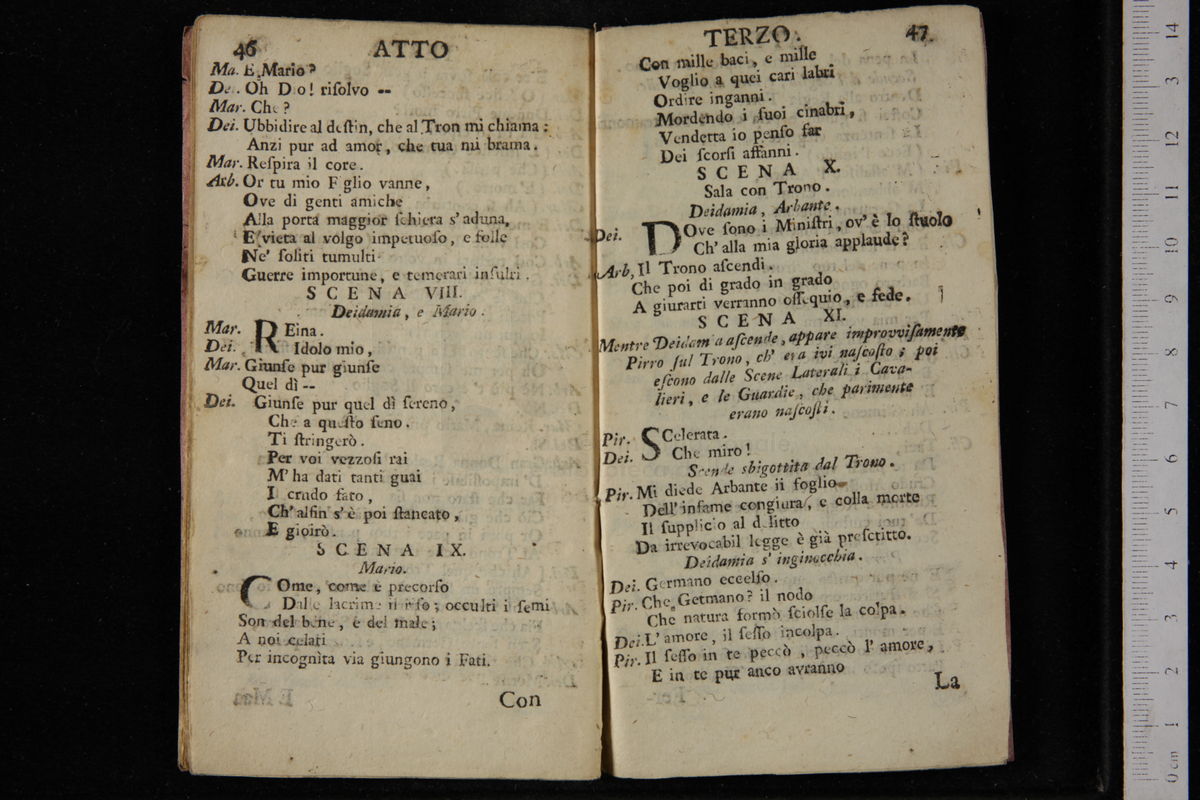 46 ATTO
Ma. E Mario?
De. Oh Dio! riſolvo --
Mar. Che?
Dei. Ubbidire al deſtin, che al Tron mi chiama:
Anzi pur ad amor, che tua mi brama.
Mar. Reſpira il core.
Arb. Or tu mio Figlio vanne,
Ove di genti amiche
Alla porta maggior ſchiera s'aduna,
E vieta al volgo impetuoſo, e folle
Ne' ſoliti tumulti
Guerre importune, e temerari inſulti.
SCENA VIII.
Deidamia, e Mario.
Mar. REina.
Dei. Idolo mio,
Mar. Giunſe pur giunſe
Quel dì --
Dei. Giunſe pur quel dì ſereno,
Che a queſto ſeno.
Ti ſtringerò.
Per voi vezzoſi rai
M'ha dati tanti guai
I crudo fato,
Ch'alfin s'è poi ſtancato,
E gioirò.
SCENA IX.
Mario.
COme, come è precorſo
Dalle lacrime il riſo; occulti i ſemi
Son del bene, e del male;
A noi celati
Per incognita via giungono i Fati.
Con
TERZO. 47.
Con mille baci, e mille
Voglio a quei cari labri
Ordire inganni.
Mordendo i ſuoi cinabri,
Vendetta io penſo far
Dei ſcorſi affanni.
SCENA X.
Sala con Trono.
Deidamia, Arbante.
Dei. DOve ſono i Miniſtri, ov'è lo ſtuolo
Ch'alla mia gloria applaude?
Arb, Il Trono aſcendi.
Che poi di grado in grado
A giurarti verranno oſſequio, e fede.
SCENA XI.
Mentre Deidamia aſcende, appare improvviſamente
Pirro ſul Trono, ch' era ivi naſcoſto; poi
eſcono dalle Scene Laterali i Cava-
lieri, e le Guardie, che parimente
erano naſcoſti.
Pir. SCelerata.
Dei. Che miro!
Scende sbigottita dal Trono.
Pir. Mi diede Arbante ii foglio
Dell'infame congiura, e colla morte
Il ſupplicio al delitto
Da irrevocabil legge è già preſcritto.
Deidamia s'inginocchia.
Dei. Germano eccelſo.
Pir. Che Germano? il nodo
Che natura formò ſciolſe la colpa.
Dei. L'amore, il ſeſſo incolpa.
Pir. Il ſeſſo in te peccò, peccò l'amore,
E in te pur anco avranno
La